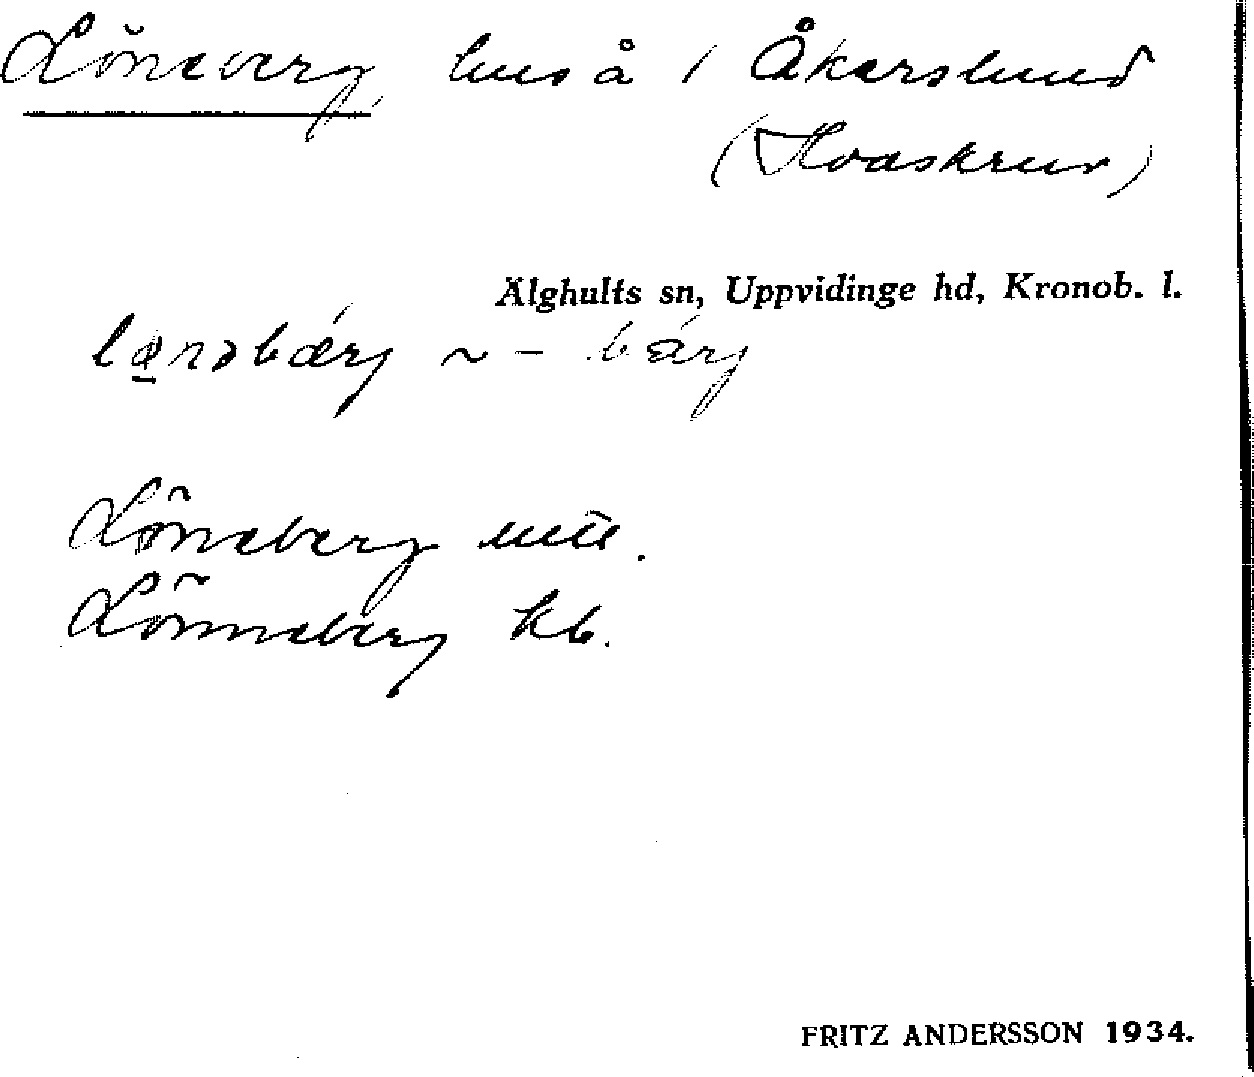 Löneberg hus å / Åkerslund
(Hvaskruv)
Älghults sn, Uppvidinge hd, Kronob. l.
lønəbærj ~ – bärj
Löneberg utt.
Lönneberg kb.
FRITZ ANDERSSON 1934.